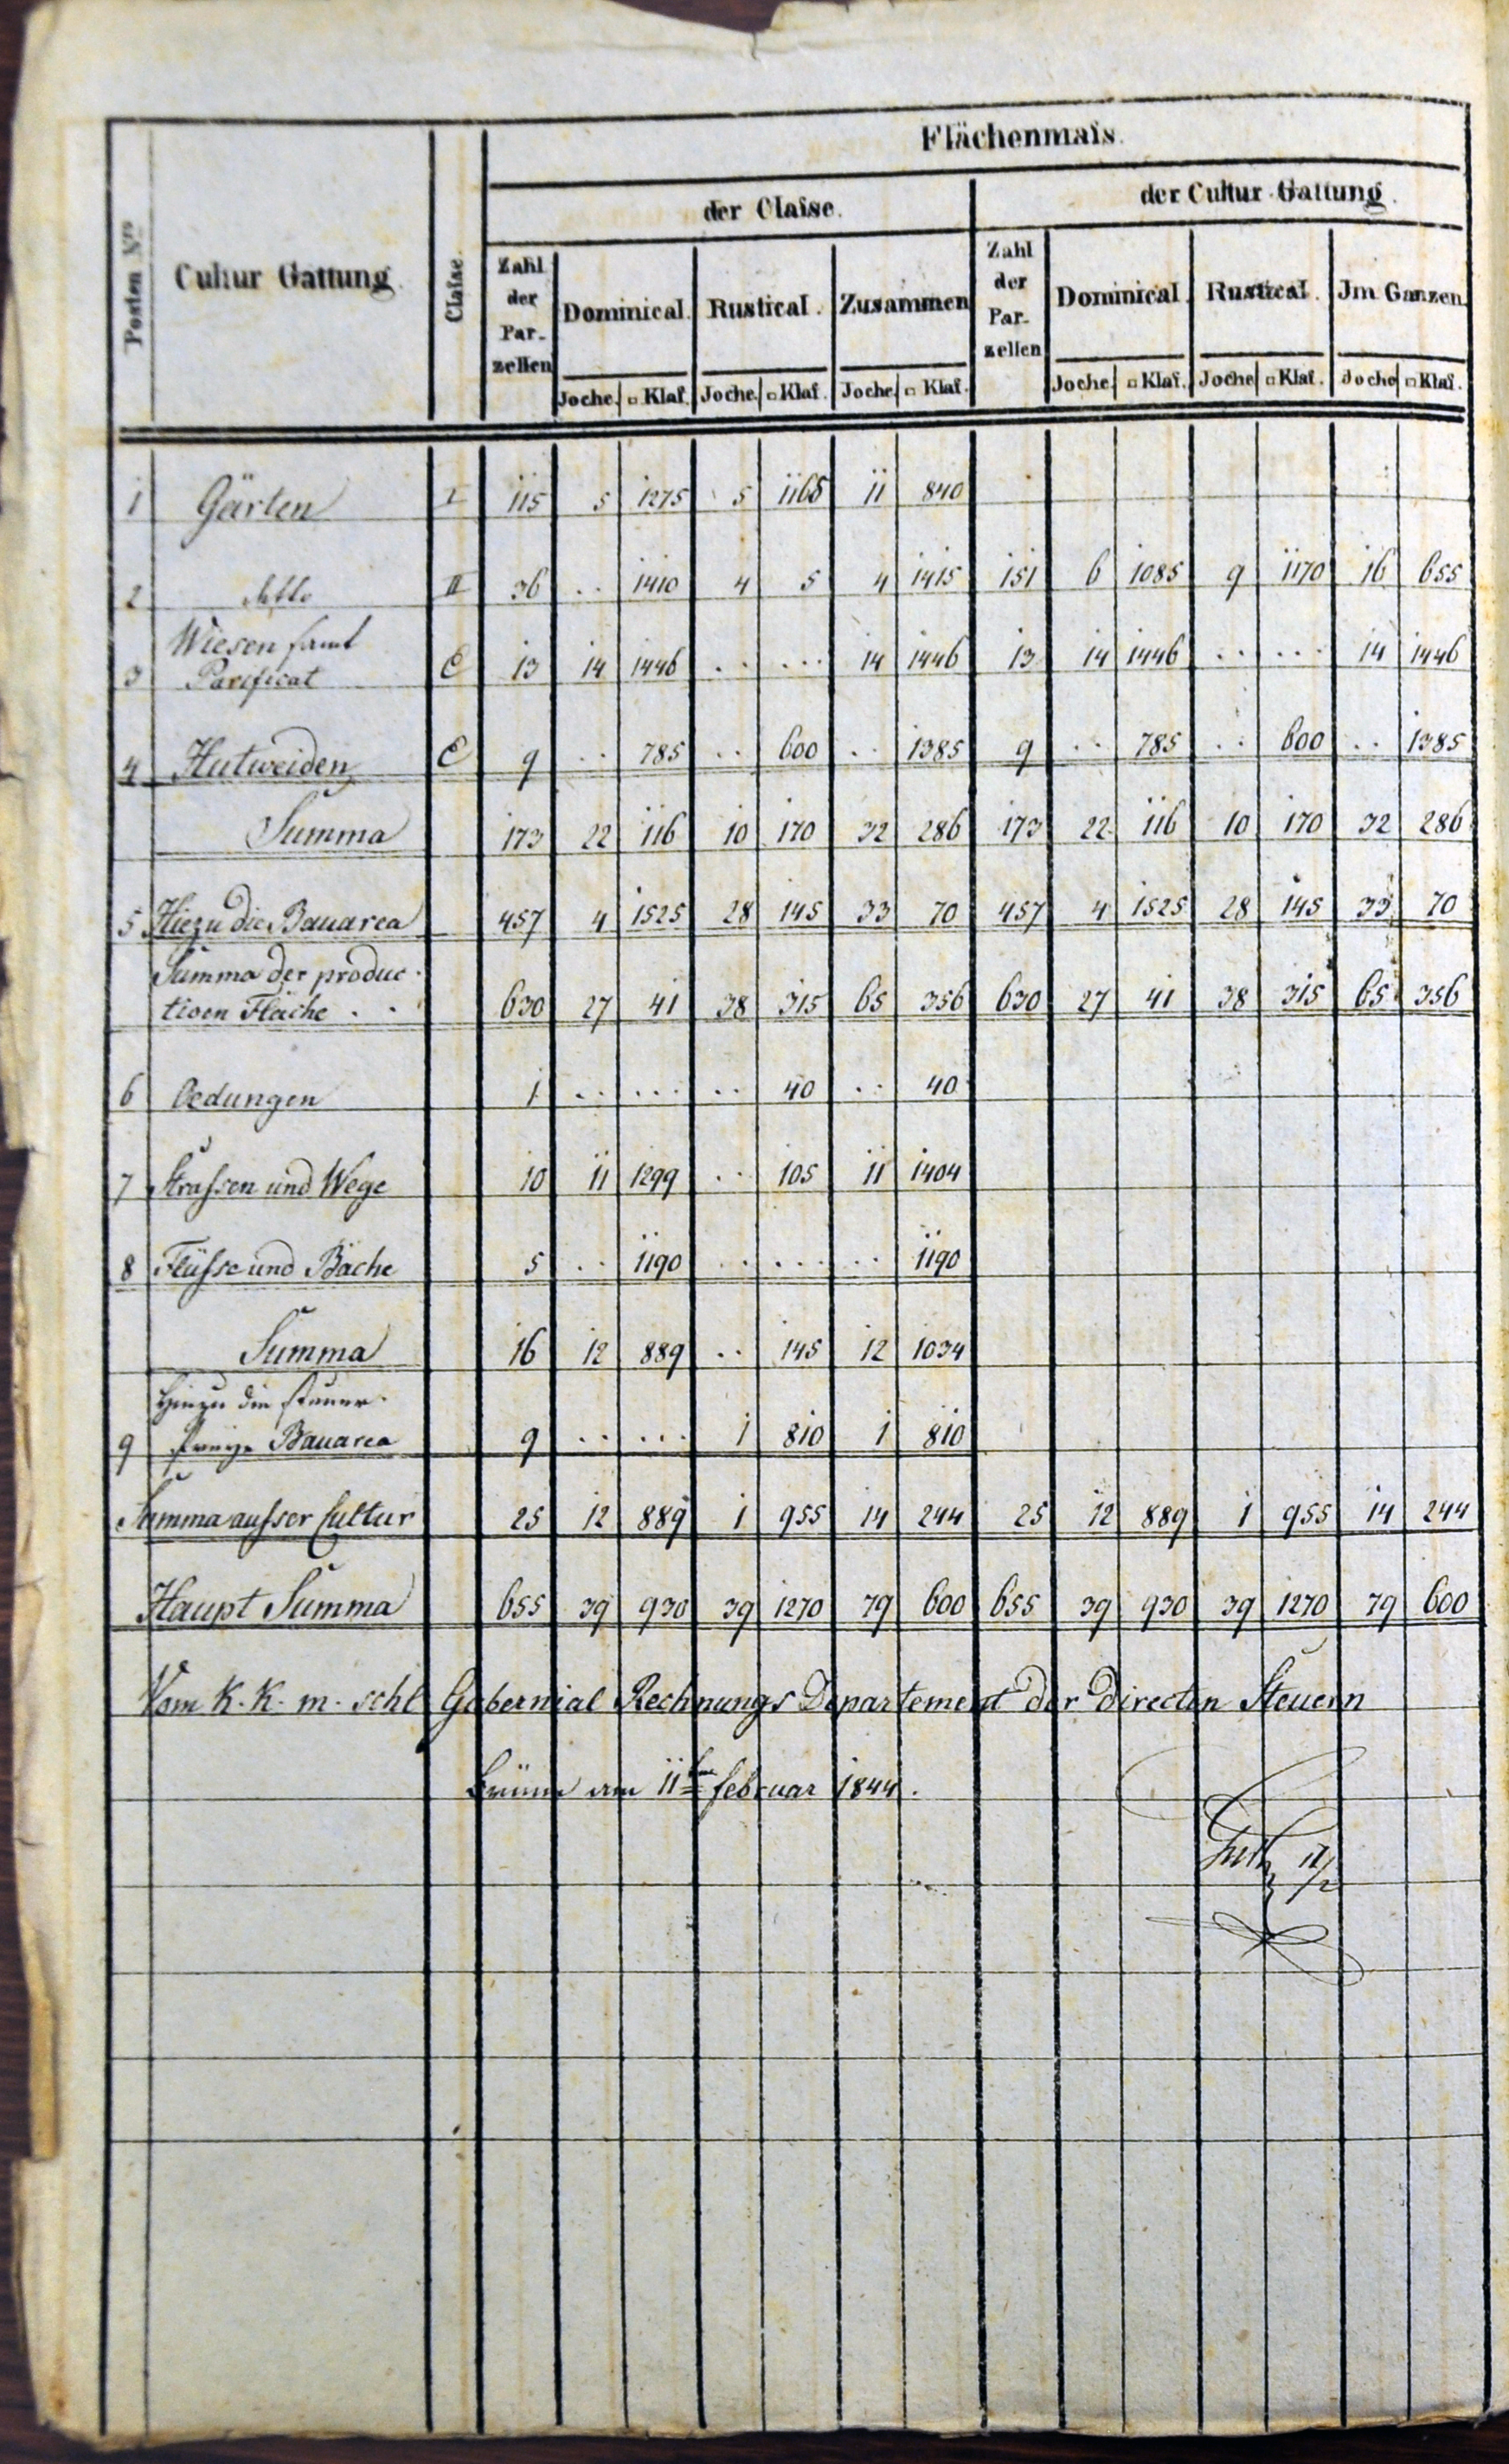 Flächenmaſs.
der Claſse. der Cultur-Gattung.
Posten Nro Cultur Gattung. Claſse. Zahl der Par-zellen Dominical. Rustical. Zusammen Zahl der Par-zellen Dominical. Rustical. Im Ganzen.
Joche. □ Klaf. Joche. □ Klaf. Joche. □ Klaf. Joche. □ Klaf. Joche. □ Klaf. Joche □ Klaf.
1 Gärten I 115 5 1275 5 1165 11 840
2 detto II 36 .. 1410 4 5 4 1415 151 6 1085 9 1170 16 655
Wiesen samt
3 Parificat E 13 14 1446 .. ... 14 1446 13 14 1446 .. ... 14 1446
4 Hutweiden E 9 .. 785 .. 600 .. 1385 9 .. 785 .. 600 .. 1385
Summa 173 22 116 10 170 32 286 173 22 116 10 170 32 286
5 Hiezu die Bauarea 457 4 1525 28 145 33 70 457 4 1525 28 145 33 70
Summa der produc-
tiven Fläche . . 630 27 41 38 315 65 356 630 27 41 38 315 65 356
6 Oedungen 1 .. ... .. 40 .. 40
7 Straſsen und Wege 10 11 1299 .. 105 11 1404
8 Flüſse und Bäche 5 .. 1190 .. ... .. 1190
Summa 16 12 889 .. 145 12 1034
Hiezu die steuer-
9 freye Bauarea 9 .. ... 1 810 1 810
Summa auſser Cultur 25 12 889 1 955 14 244 25 12 889 1 955 14 244
Haupt Summa 655 39 930 39 1270 79 600 655 39 930 39 1270 79 600
Vom K. K. m. schl Gubernial Rechnungs Departement der directen Steuern
Brünn am 11ten Februar 1844.